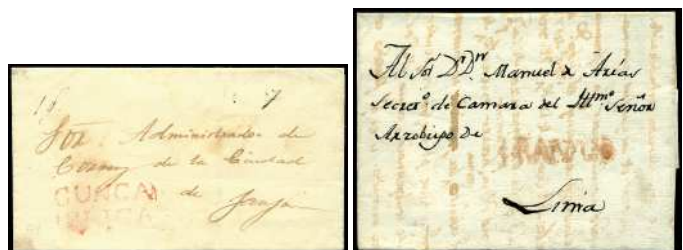 Sor. Administrador de
Correos de la Ciudad
de Jauja
Al Sor. Dr. Dn. Manuel de Arias
Secreto. de Camara del Illmo. Señor
Arzobispo de
Lima